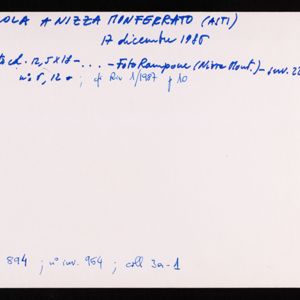 OLA A NIZZA MONFERRATO (ASTI)
17 dicembre 1986
to cl. 12,5x18 - ... - Foto Rampone (Nizza Monf.) - inv. 22
n° 5, 12 ; cf Riv 1/1987 p 10
894 ; n° inv. 954 ; coll 3a-1